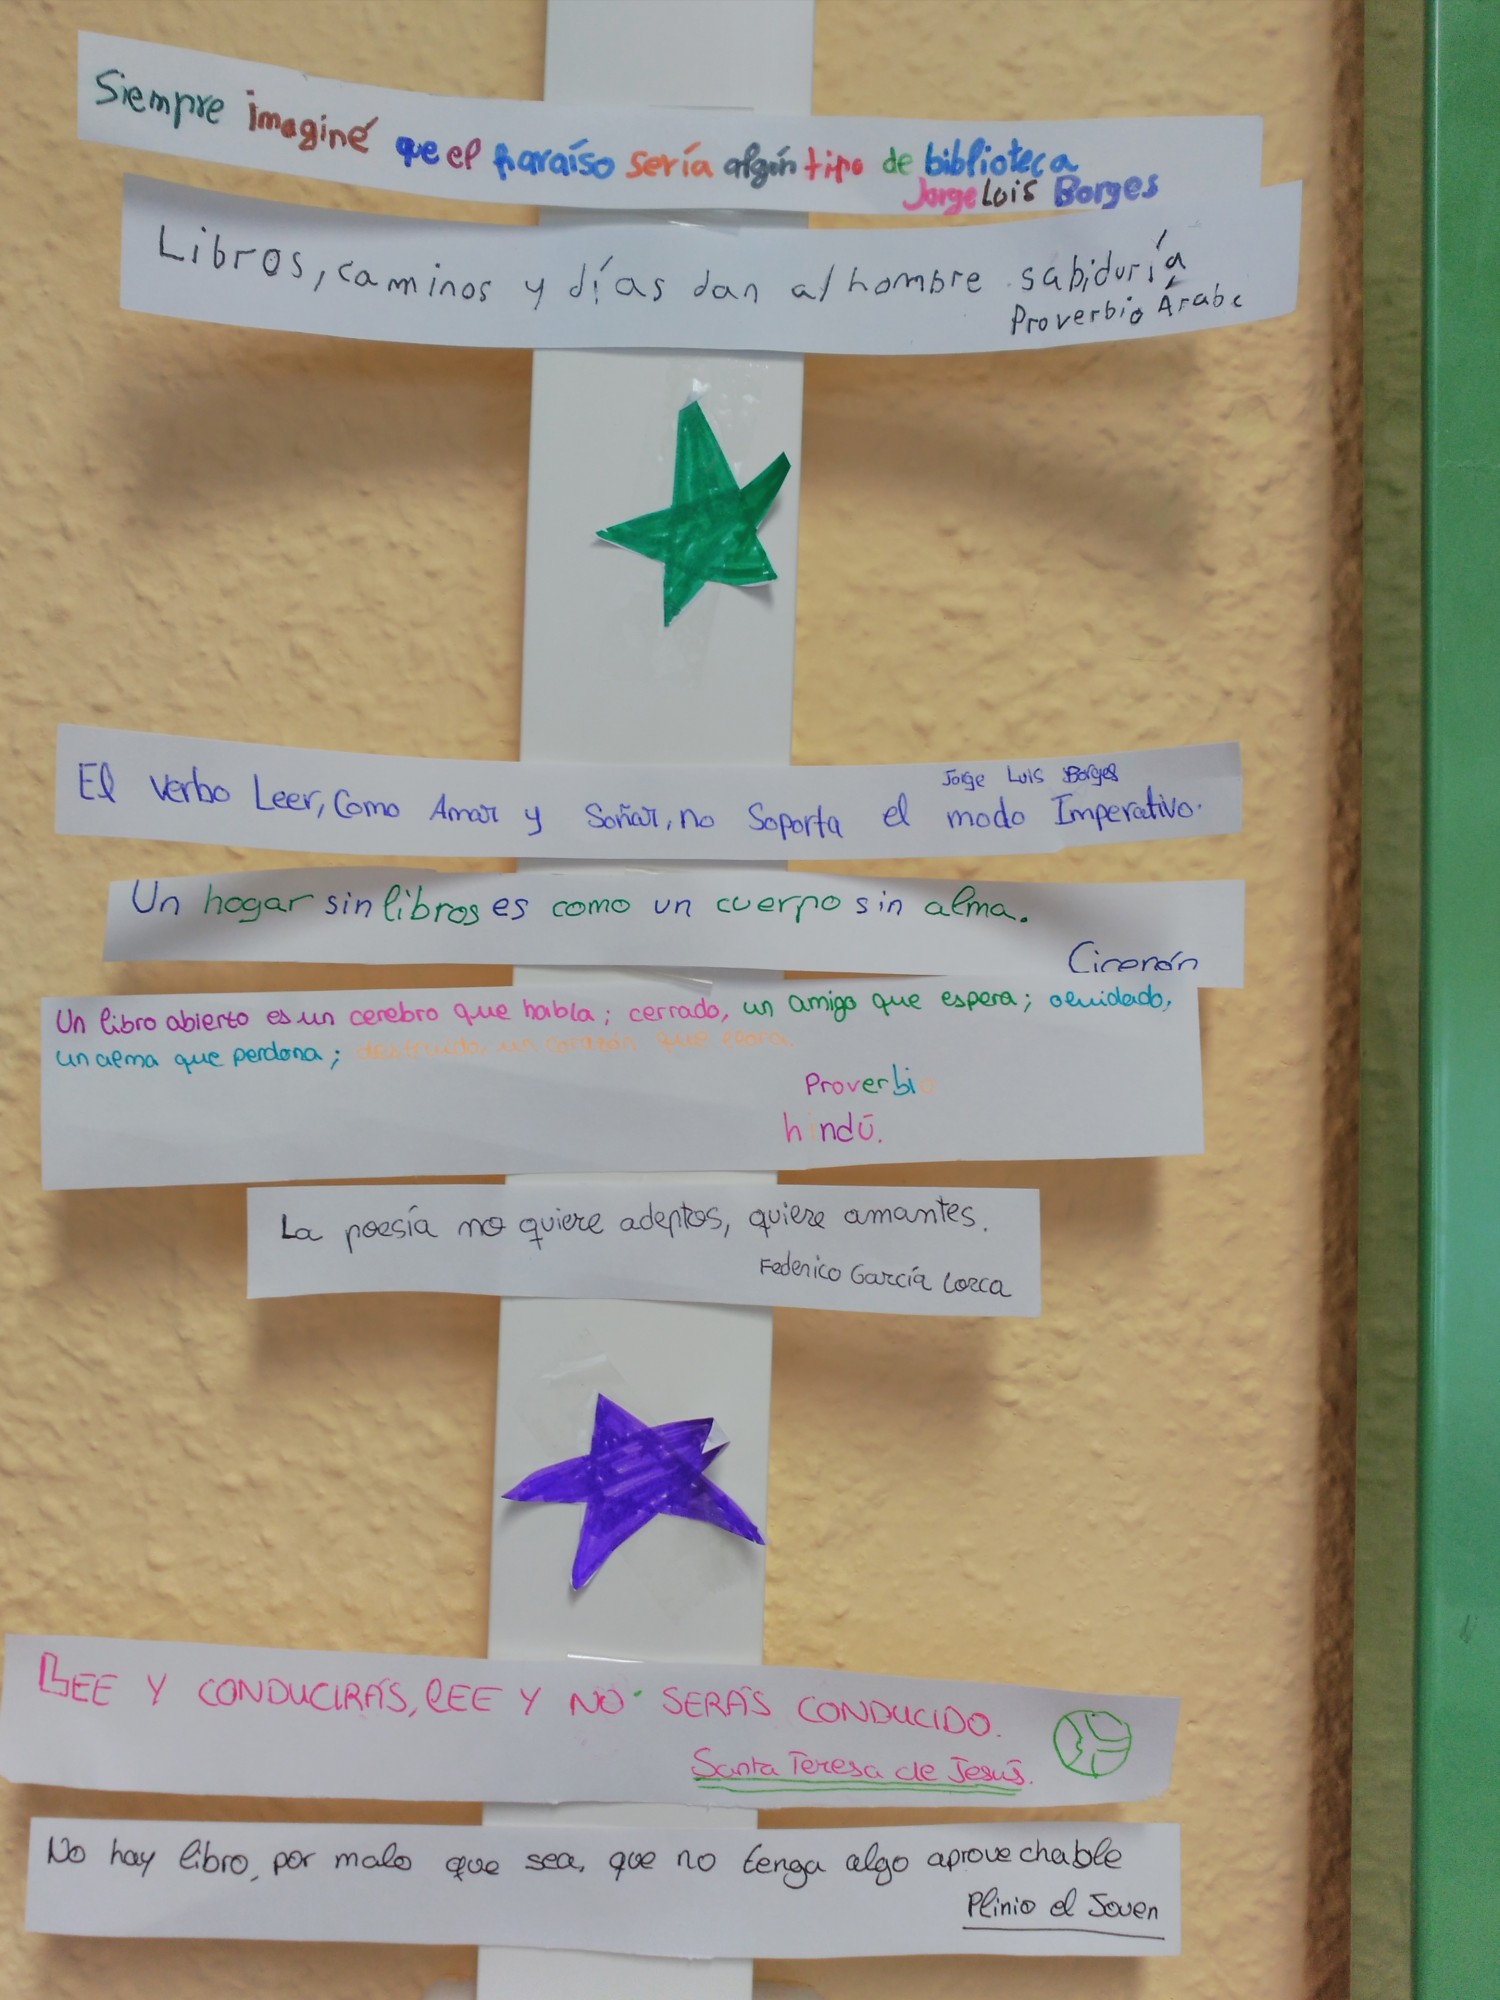 Siempre imaginé que el paraíso sería algún tipo de biblioteca
Jorge Luis Borges
Libros, caminos y días dan al hombre sabiduría
Proverbio Árabe
Jorge Luis Borges
El verbo Leer, Como Amar y Soñar, no Soporta el modo Imperativo.
Un hogar sin libros es como un cuerpo sin alma.
Cicerón
Un libro abierto es un cerebro que habla; cerrado, un amigo que espera; olvidado,
un alma que perdona; destruido, un corazón que llora.
Proverbio
hindú.
La poesía no quiere adeptos, quiere amantes.
Federico García Lorca
LEE Y CONDUCIRÁS, LEE Y NO SERÁS CONDUCIDO.
Santa Teresa de Jesús.
No hay libro, por malo que sea, que no tenga algo aprovechable
Plinio el Joven